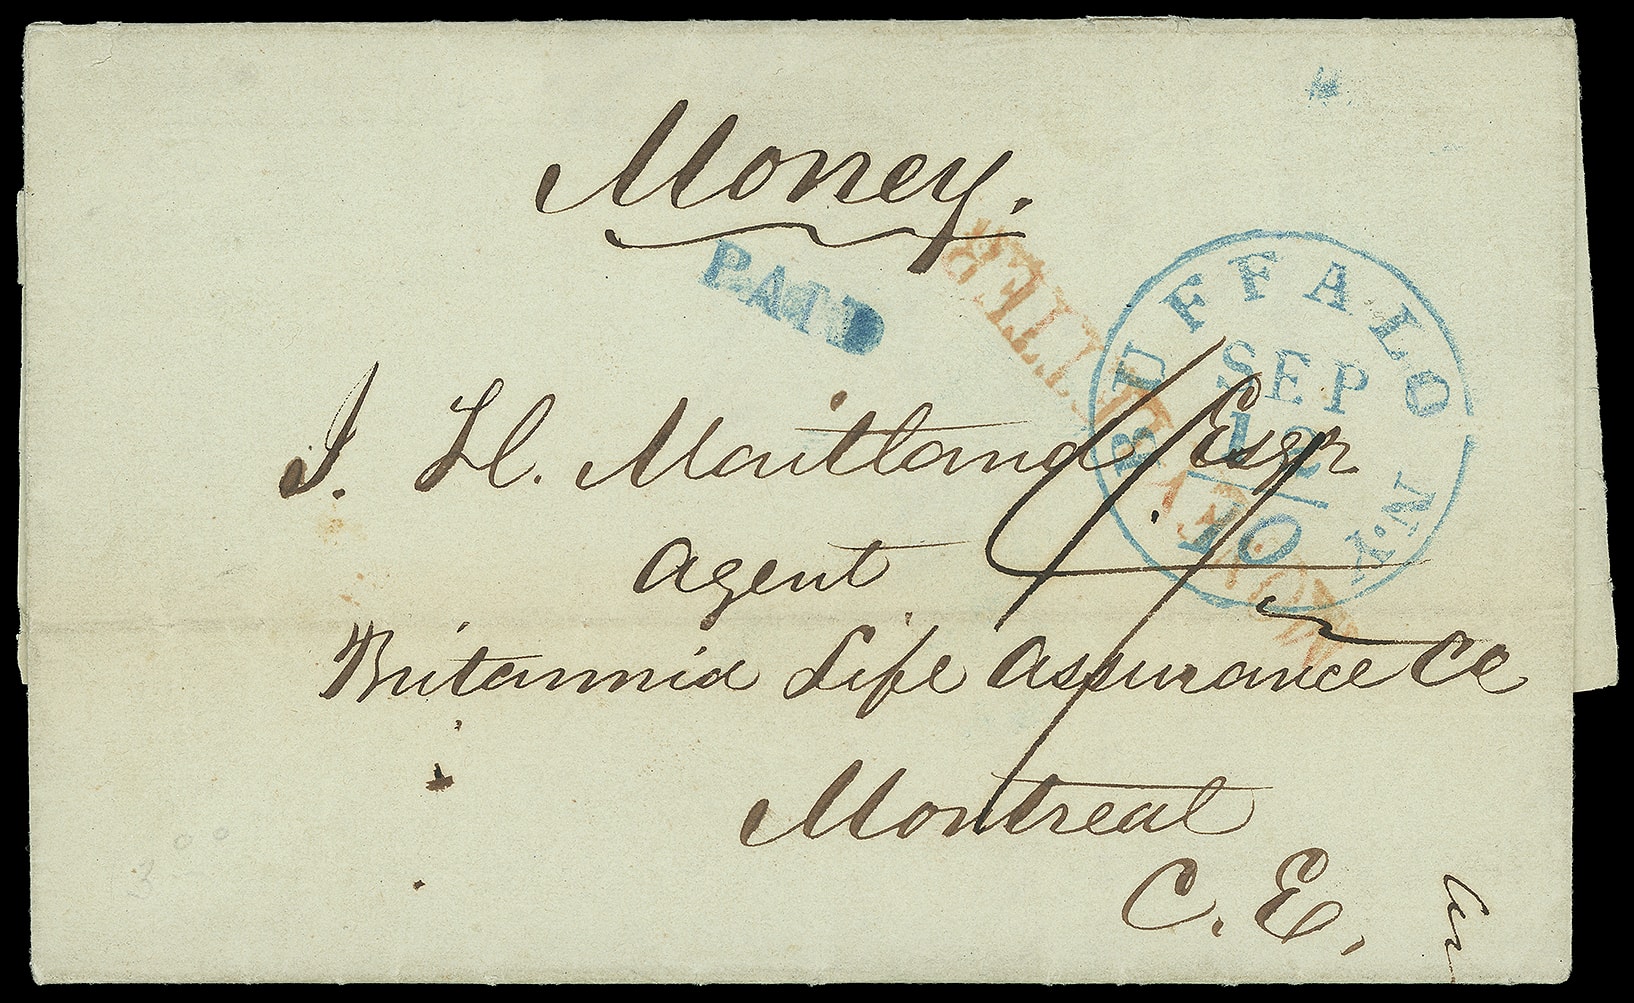 Money.
PAID
MONEY LETTER
BUFFALO N.Y.
SEP
12
10
J. H. Maitland Esqr
Agent
Britannia Life Assurance Co
Montreal
C. E.